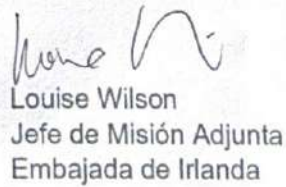 Louise Wilson
Jefe de Misión Adjunta
Embajada de Irlanda